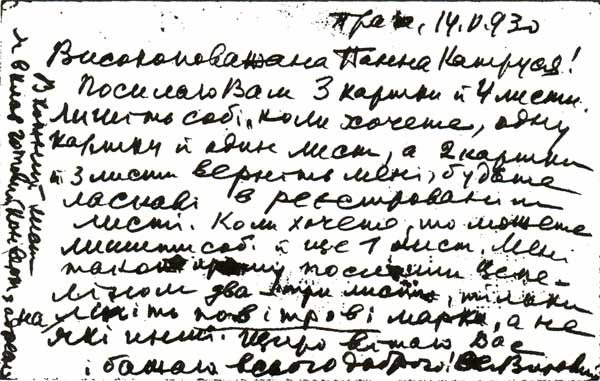 Прага, 14.V.930
Високоповажана Панна Катруся!
Посилаю Вам 3 картки й 4 листи.
Лишіть собі, коли хочете, одну
картку й один лист, а 2 картки
й 3 листи верніть мені, будьте
ласкаві в реєстрованім
листі. Коли хочете, то можете
лишити собі й ще 1 лист. Мені
також пошліть Цепе-
ліном два три листи, тільки
наліпіть повітрові марки, а не
які инші. Щиро вітаю Вас
і бажаю всього доброго!
В кожний лист
я вклав готовий конверт з адресою